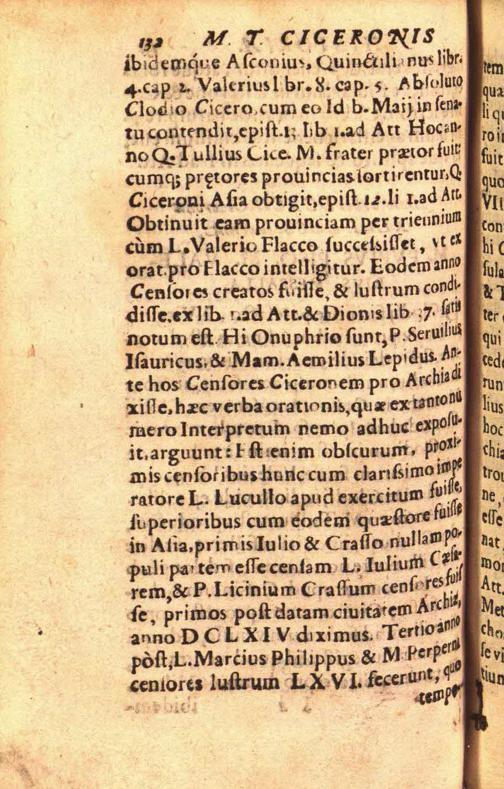 132 M. T. CICERONIS
ibidemq́ue Asconius, Quinctilianus libr.
4. cap 2. Valerius l br. 8. cap. 5. Absoluto
Clodio Cicero, cum eo Id b. Maij in sena-
tu contendit, epist. 13 lib 1. ad Att Hocan-
no Q. Tullius Cice. M. frater prætor fuit:
cumq; prętores prouincias sortirentur, Q.
Ciceroni Asia obtigit, epist. 12. li 1. ad Att.
Obtinuit eam prouinciam per triennium
cùm L. Valerio Flacco successisset, vt ex
orat. pro Flacco intelligitur. Eodem anno
Censores creatos fuisse, & lustrum condi-
disse, ex lib. 1. ad Att. & Dionis lib 37. satis
notum est. Hi Onuphrio sunt, P. Seruilius
Isauricus, & Mam. Aemilius Lepidus. An-
te hos Censores Ciceronem pro Archia di
xisse, hæc verba orationis, quæ ex tanto nu
mero Interpretum nemo adhuc exposu-
it, arguunt: Est enim obscurum, proxi-
mis censoribus hunc cum clarissimo impe
ratore L. Lucullo apud exercitum fuisse,
superioribus cum eodem quæstore fuisse
in Asia, primis Iulio & Crasso nullam po-
puli partem esse censam L. Iulium Cæsa-
rem, & P. Licinium Crassum censores fuis
se, primos post datam ciuitatem Archiæ,
anno DCLXIV diximus. Tertio anno
pòst, L. Marcius Philippus & M Perperna
censores lustrum LXVI. fecerunt, quo
tempo-